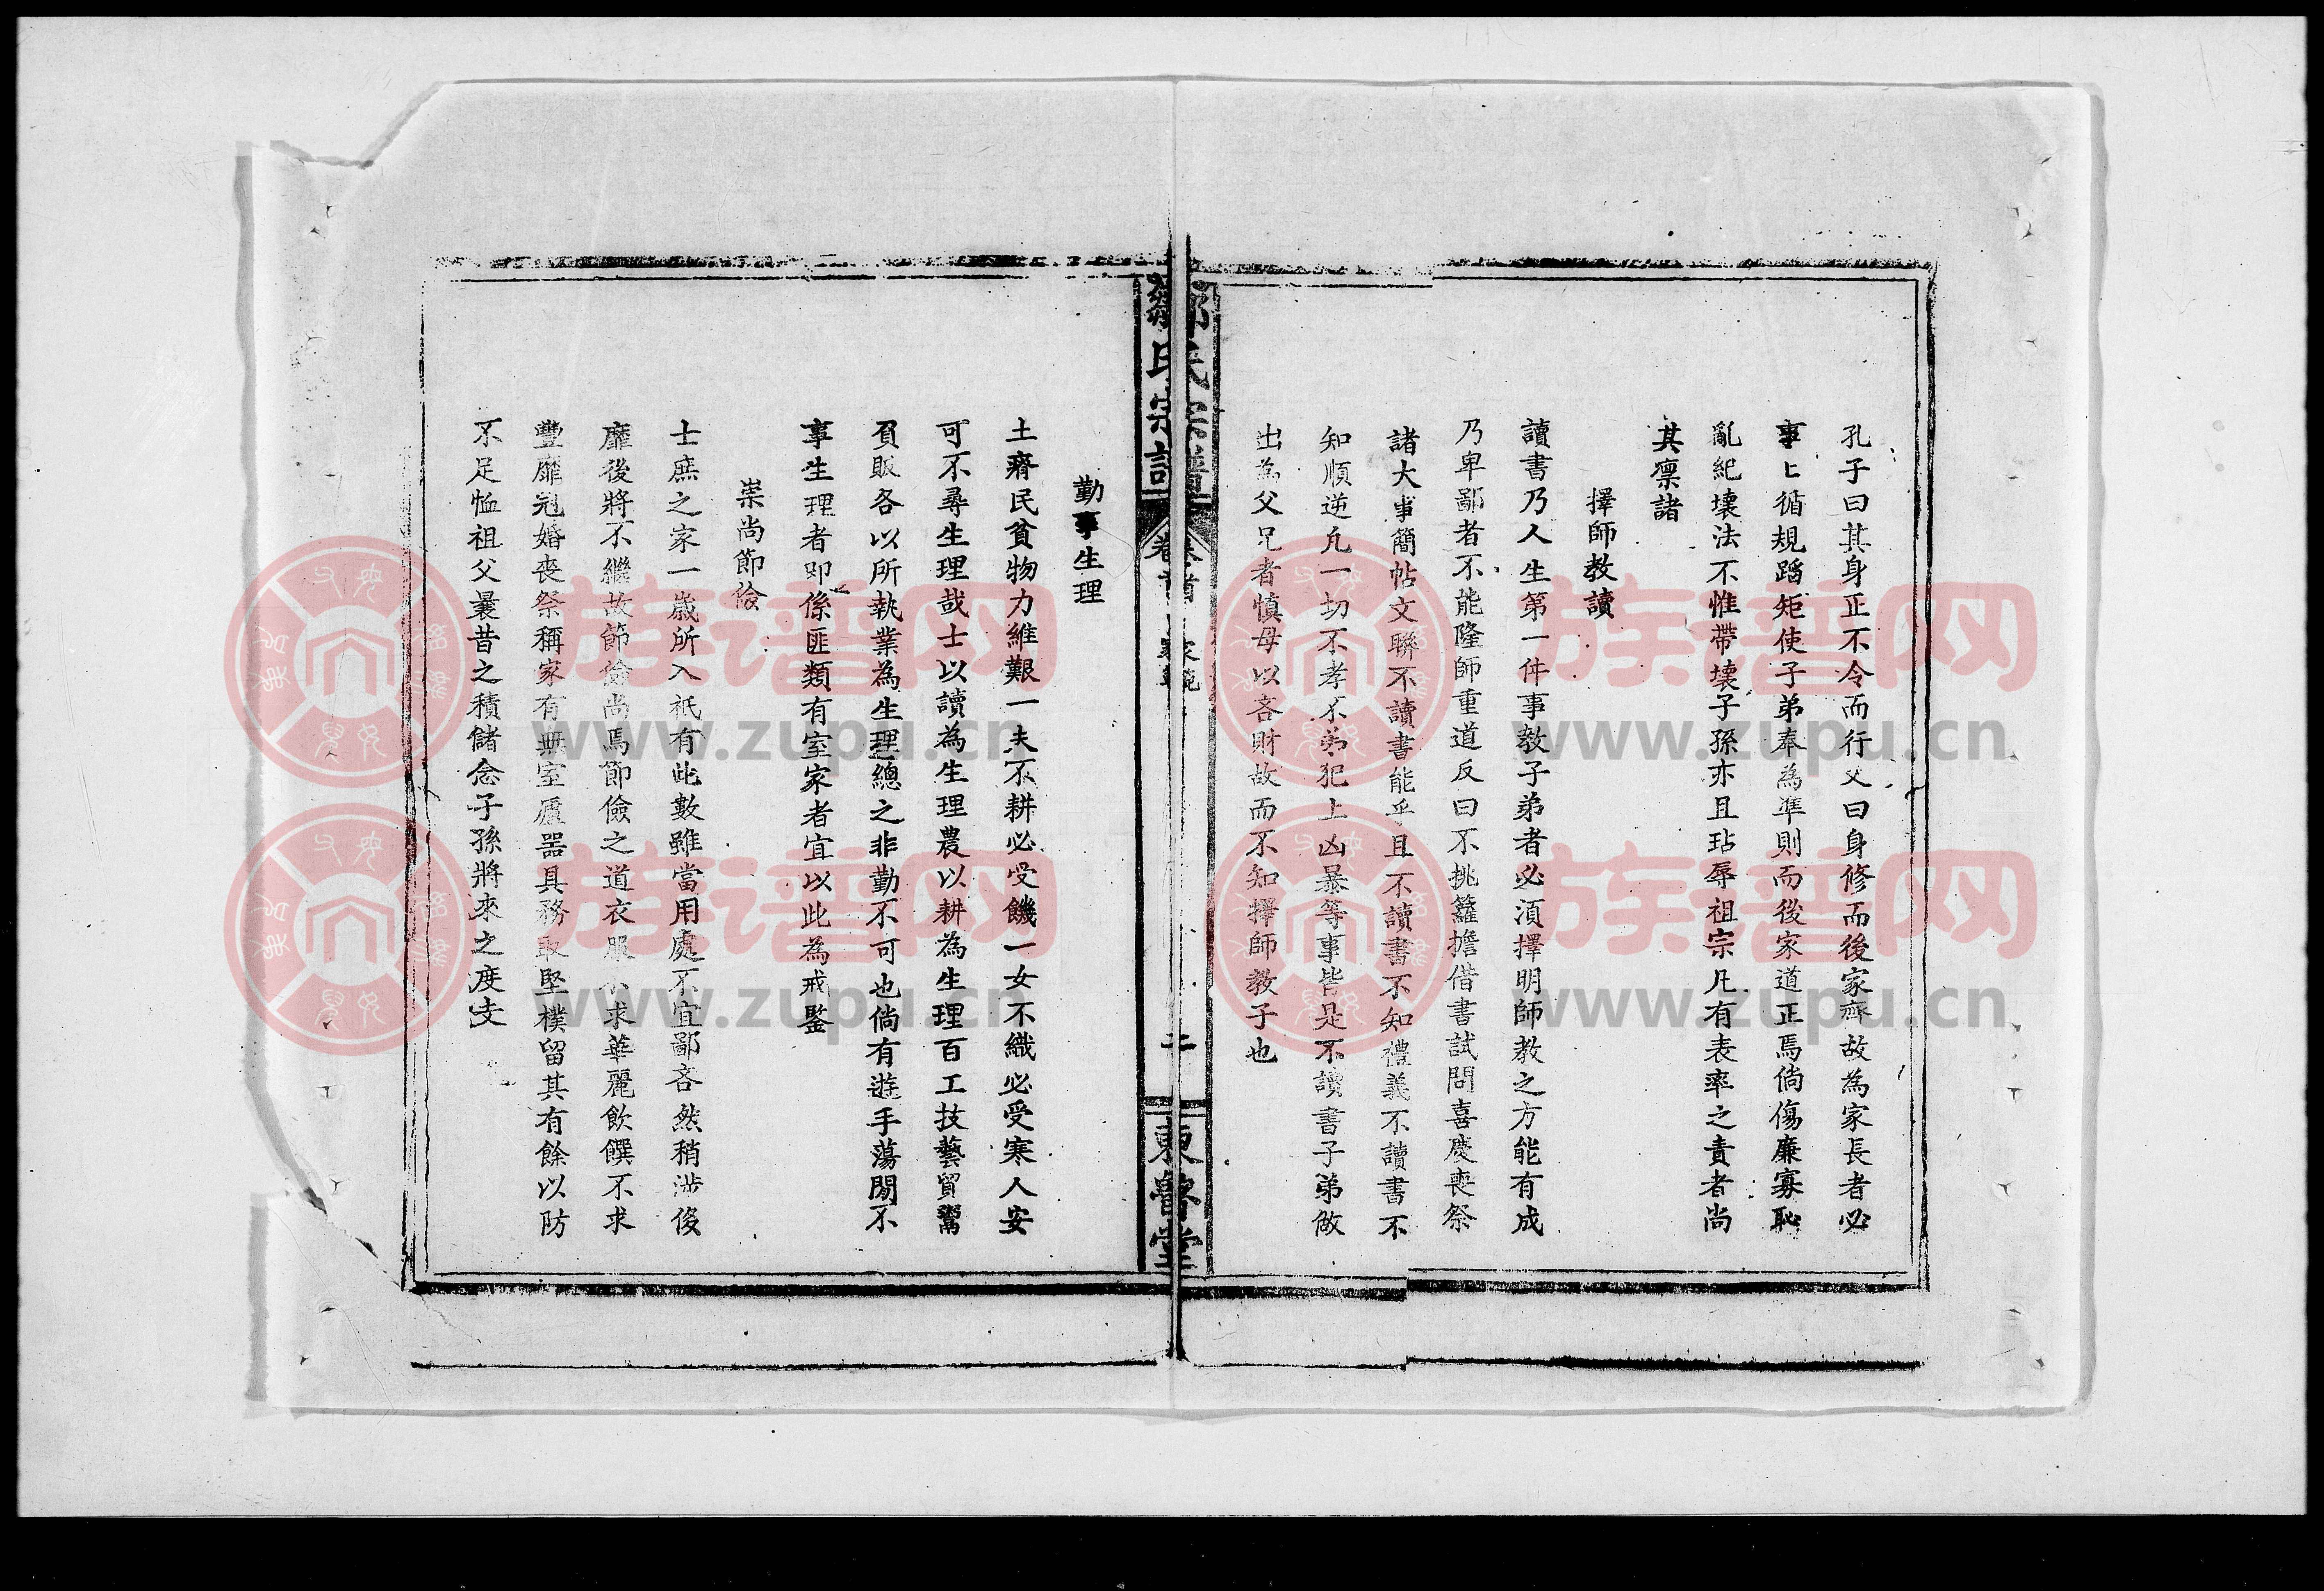 孔子曰其身正不令而行又曰身修而後家齊故為家長者必
事匕循規蹈矩使子弟奉為準則而後家道正焉倘傷廉寡恥
亂紀壞法不惟帶壞子孫亦且玷辱祖宗凡有表率之責者尚
其凛諸
擇師教讀
讀書乃人生第一件事教子弟者必須擇明師教之方能有成
乃卑鄙者不能隆師重道反曰不挑籮擔借書試問喜慶喪祭
諸大事簡帖文聯不讀書能乎且不讀書不知禮義不讀書不
知順逆凡一切不孝不弟犯上凶暴等事皆是不讀書子弟做
出為父兄者慎毋以吝財故而不知擇師教子也
鄒氏宗譜
卷首
家範
二
東魯堂
勤事生理
土瘠民貧物力維艱一夫不耕必受饑一女不織必受寒人安
可不尋生理哉士以讀為生理農以耕為生理百工技藝貿鬻
負販各以所執業為生理總之非勤不可也倘有遊手蕩閒不
事生理者即係匪類有室家者宜以此為戒鑒
崇尚節儉
士庶之家一歲所入祇有此數雖當用處不宜鄙吝然稍涉侈
靡後將不繼故節儉尚焉節儉之道衣服不求華麗飲饌不求
豐靡冠婚喪祭稱家有無室廬器具務取堅樸留其有餘以防
不足恤祖父曩昔之積儲念子孫將來之度支
族谱网
www.zupu.cn
族谱网
www.zupu.cn
族谱网
www.zupu.cn
族谱网
www.zupu.cn